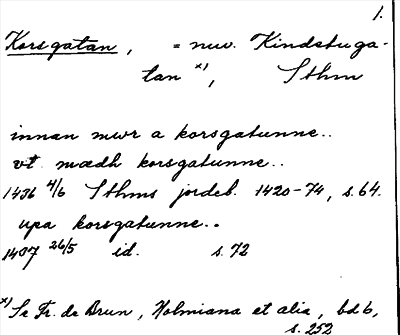 1.
Korsgatan, = nuv. Kindstuga-
tan x), Sthm
innan mwr a korsgatunne..
vt mædh korsgatunne..
1436 4/6 Sthms jordeb. 1420-74, s. 64.
upa korsgatunne..
1437 26/5 id. s. 72
x) Se Fr. de Brun, Holmiana et alia, bd 6,
s. 252